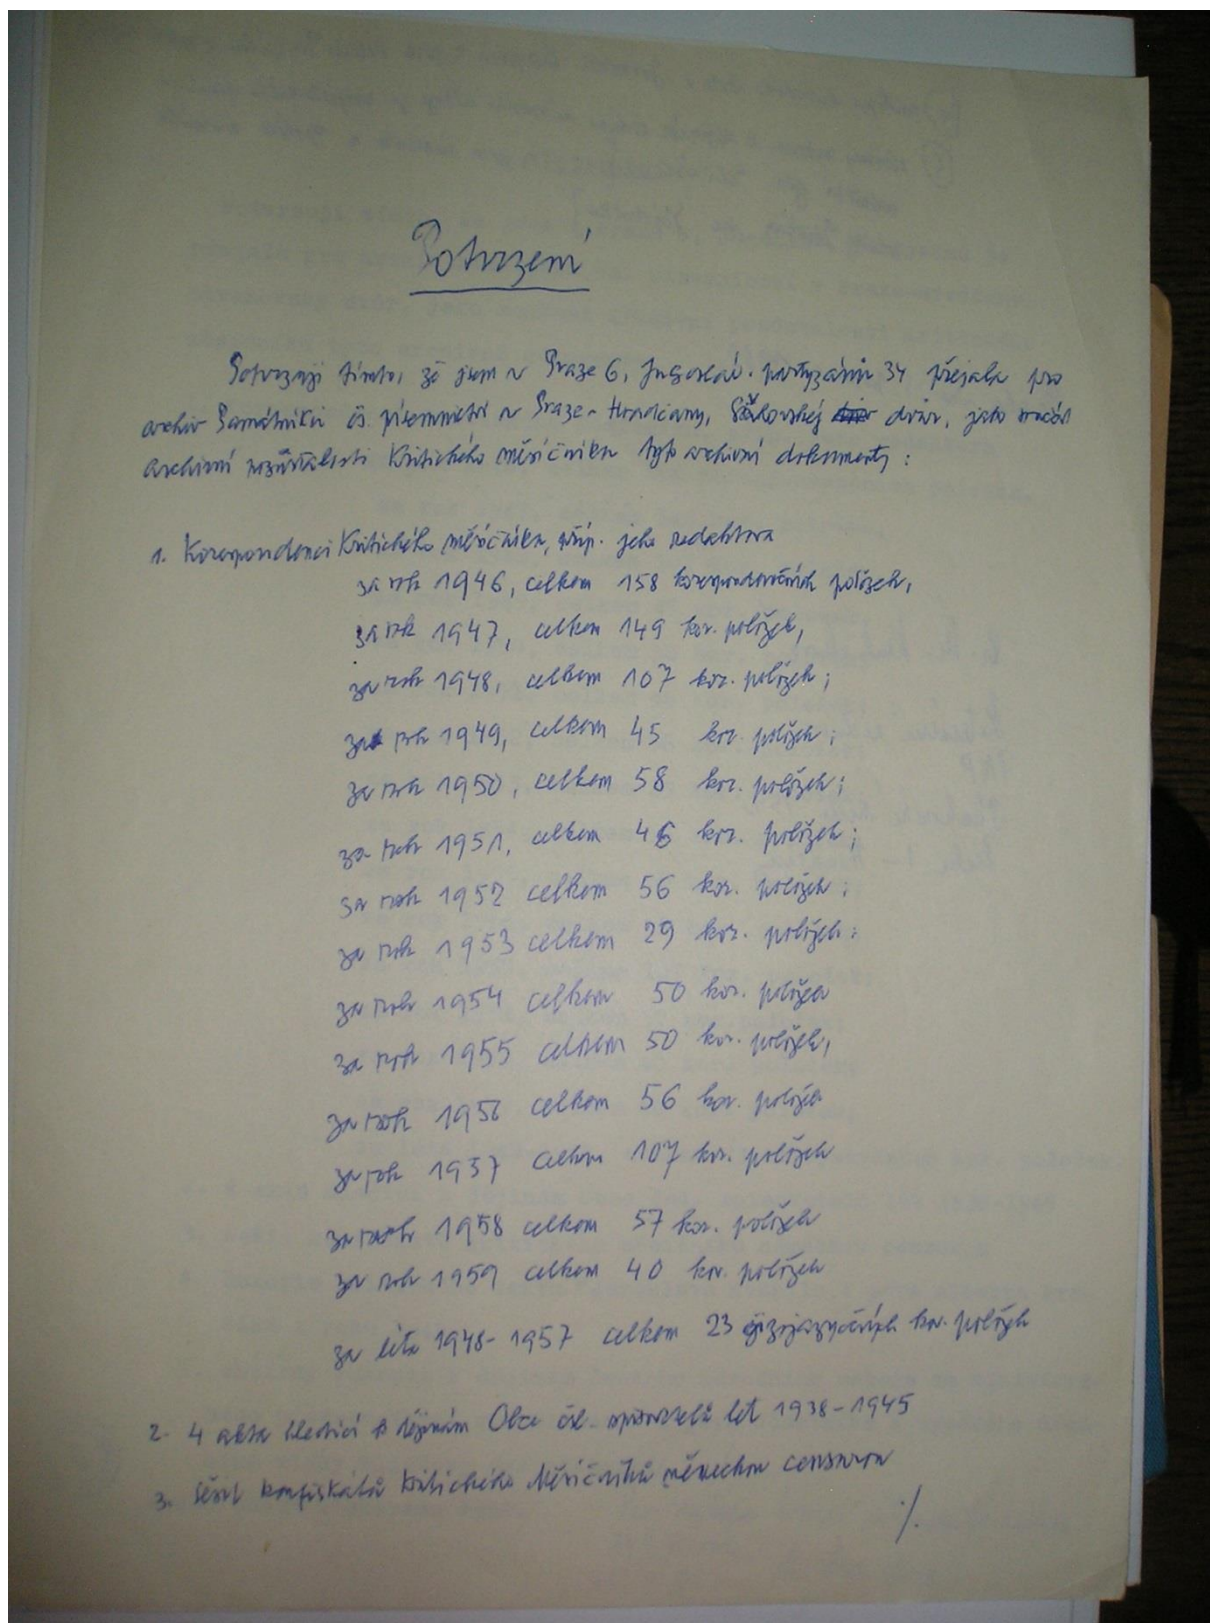 Potvrzení
Potvrzuji tímto, že jsem v Praze 6, Jugosláv. partyzánů 34 přejala pro
archiv Památníku čs. písemnictví v Praze - Hradčany, dvůr, jako
archivní pozůstalosti Kritického měsíčníku tyto archivní dokumenty:
1. Korespondenci Kritického měsíčníku, příp. jeho redaktora
za rok 1946, celkem 158 korespondenčních položek,
za rok 1947, celkem 149 kor. položek,
za rok 1948, celkem 107 kor. položek;
za rok 1949, celkem 45 kor. položek;
za rok 1950, celkem 58 kor. položek;
za rok 1951, celkem 46 kor. položek;
za rok 1952 celkem 56 kor. položek;
za rok 1953 celkem 29 kor. položek;
za rok 1954 celkem 50 kor. položek
za rok 1955 celkem 50 kor. položek,
za rok 1956 celkem 56 kor. položek
za rok 1957 celkem 107 kor. položek
za rok 1958 celkem 57 kor. položek
za rok 1959 celkem 40 kor. položek
za léta 1948-1957 celkem 23 cizojazyčných kor. položek
2. 4 akta hledící k dějinám Obce čsl. spisovatelů let 1938-1945
3. Sešit konfiskátů Kritického Měsíčníku německou censurou
./.